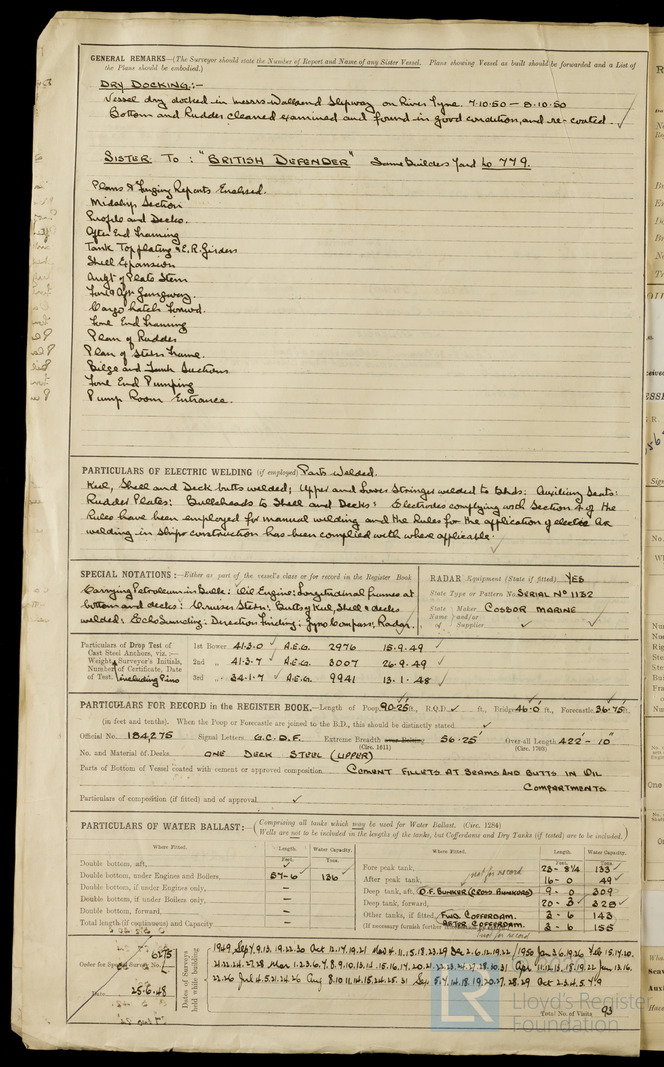 GENERAL REMARKS—(The Surveyor should state the Number of Report and Name of any Sister Vessel. Plans showing Vessel as built should be forwarded and a List of
the Plans should be embodied.)
DRY DOCKING:-
Vessel dry docked in Messrs Wallsend Slipway on River Tyne. 7.10.50 — 8.10.50
Bottom and Rudder cleaned examined and found in good condition, and re-coated.
SISTER TO: "BRITISH DEFENDER" Same Builders Yard No 779.
Plans & Forging Reports Enclosed.
Midship Section
Profile and Decks.
After End Framing
Tank Top plating & E.R. Girders
Shell Expansion
Plate Stem
Gangway.
Cargo hatch Forwd.
Fore End Framing
Plan of Rudder
Plan of Stern Frame.
Bilge and Tank Suctions
Fore End Pumping
Pump Room Entrance.
PARTICULARS OF ELECTRIC WELDING (if employed) Parts Welded.
Keel, Shell and Deck butts welded; Upper and Lower Stringer welded to Bhds: Auxiliary Seats:
Rudder Plates: Bulkheads to Shell and Decks: Electrodes complying with Section 4 of the
Rules have been employed for manual welding and the Rules for the application of electric arc
welding in ships construction has been complied with where applicable.
SPECIAL NOTATIONS:—Either as part of the vessel's class or for record in the Register Book
Carrying Petroleum in Bulk: Oil Engine: Longitudinal frames at
bottom and decks: Cruiser Stern: Butts of Keel, Shell & decks
welded: Echo Sounding: Direction Finding: Gyro Compass: Radar.
RADAR Equipment (State if fitted) YES
State Type or Pattern No. SERIAL No 1132
State Name of Maker and/or Supplier COSSOR MARINE
Particulars of Drop Test of Cast Steel Anchors, viz.:—
Weight, Surveyor's Initials, Number of Certificate, Date of Test. including Pins
1st Bower 41.3.0 A.E.G. 2976 15.9.49
2nd „ 41.3.7 A.E.G. 3007 26.9.49
3rd „ 34.1.7 A.E.G. 9941 13.1.48
PARTICULARS FOR RECORD in the REGISTER BOOK.—Length of Poop 90.25 ft., R.Q.D. ft., Bridge 46.0 ft., Forecastle 36.75 ft.
(in feet and tenths). When the Poop or Forecastle are joined to the B.D., this should be distinctly stated
Official No. 184275 Signal Letters G.C.D.F. Extreme Breadth (Circ. 1611) 56.25' Over-all Length (Circ. 1703) 422'-10"
No. and Material of Decks ONE DECK STEEL (UPPER)
Parts of Bottom of Vessel coated with cement or approved composition CEMENT FILLETS AT SEAMS AND BUTTS IN OIL
COMPARTMENTS
Particulars of composition (if fitted) and of approval
PARTICULARS OF WATER BALLAST:—(Comprising all tanks which may be used for Water Ballast. (Circ. 1284)
Wells are not to be included in the lengths of the tanks, but Cofferdams and Dry Tanks (if tested) are to be included.)
Where Fitted. Length. Feet. Water Capacity. Tons.
Double bottom, aft,
Double bottom, under Engines and Boilers, 57-6 136
Double bottom, if under Engines only, —
Double bottom, if under Boilers only, —
Double bottom, forward, —
Total length (if continuous) and Capacity —
Where Fitted. Length. Feet. Water Capacity. Tons.
Fore peak tank, not for record 23-8¼ 133
After peak tank, 16-0 49
Deep tank, aft, O.F. BUNKER (CROSS BUNKERS) 9-0 309
Deep tank, forward, 20-3 328
Other tanks, if fitted, FWD. COFFERDAM. 3-6 143
(If necessary furnish further AFTER COFFERDAM. 3-6 155
not for record
Order for Special Survey No. 6275
Date 25.6.48
Dates of Surveys held while building
Total No. of Visits 93
LR
Lloyd's Register
Foundation